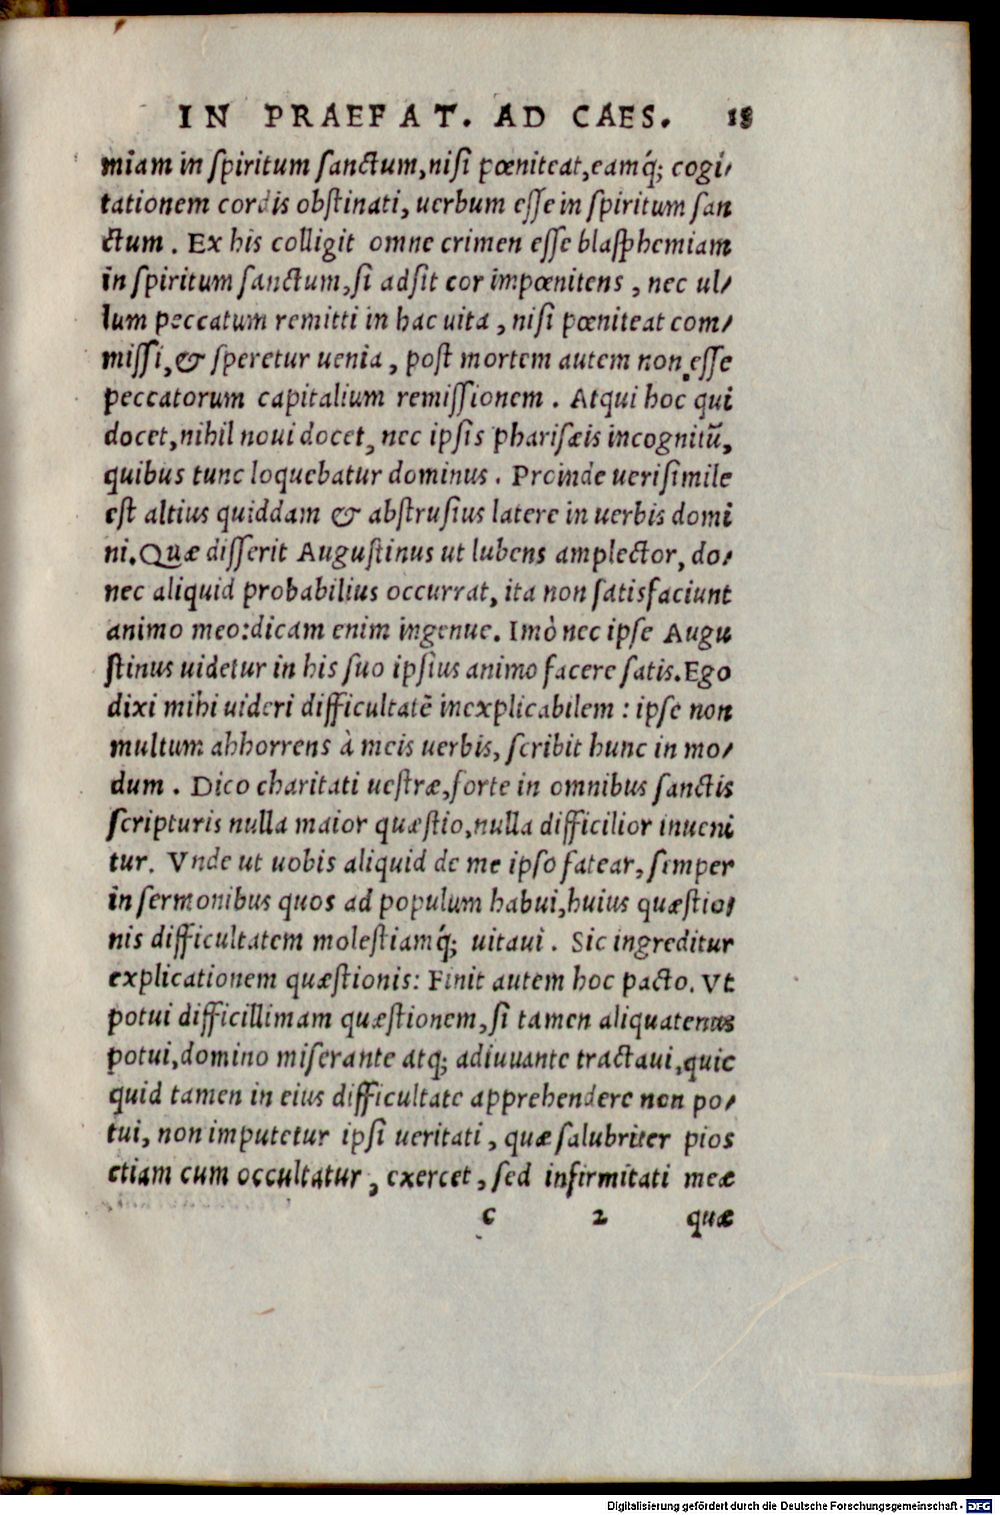 IN PRAEFAT. AD CAES. 18
miam in ſpiritum ſanctum, niſi pœniteat, eamq́; cogi/
tationem cordis obſtinati, uerbum eſſe in ſpiritum ſan
ctum. Ex his colligit omne crimen eſſe blaſphemiam
in ſpiritum ſanctum, ſi adſit cor impœnitens, nec ul/
lum peccatum remitti in hac uita, niſi pœniteat com/
miſſi, & ſperetur uenia, poſt mortem autem non eſſe
peccatorum capitalium remiſſionem. Atqui hoc qui
docet, nihil noui docet, nec ipſis phariſæis incognitū,
quibus tunc loquebatur dominus. Proinde ueriſimile
eſt altius quiddam & abſtruſius latere in uerbis domi
ni. Quæ diſſerit Auguſtinus ut lubens amplector, do/
nec aliquid probabilius occurrat, ita non ſatisfaciunt
animo meo: dicam enim ingenue. Imò nec ipſe Augu
ſtinus uidetur in his ſuo ipſius animo facere ſatis. Ego
dixi mihi uideri difficultatē inexplicabilem: ipſe non
multum abhorrens à meis uerbis, ſcribit hunc in mo/
dum. Dico charitati ueſtræ, forte in omnibus ſanctis
ſcripturis nulla maior quæſtio, nulla difficilior inueni
tur. Vnde ut uobis aliquid de me ipſo fatear, ſemper
in ſermonibus quos ad populum habui, huius quæſtio/
nis difficultatem moleſtiamq́; uitaui. Sic ingreditur
explicationem quæſtionis: Finit autem hoc pacto. Vt
potui difficillimam quæſtionem, ſi tamen aliquatenus
potui, domino miſerante atq; adiuuante tractaui, quic
quid tamen in eius difficultate apprehendere non po/
tui, non imputetur ipſi ueritati, quæ ſalubriter pios
etiam cum occultatur, exercet, ſed infirmitati meæ
c 2 quæ
Digitalisierung gefördert durch die Deutsche Forschungsgemeinschaft - DFG